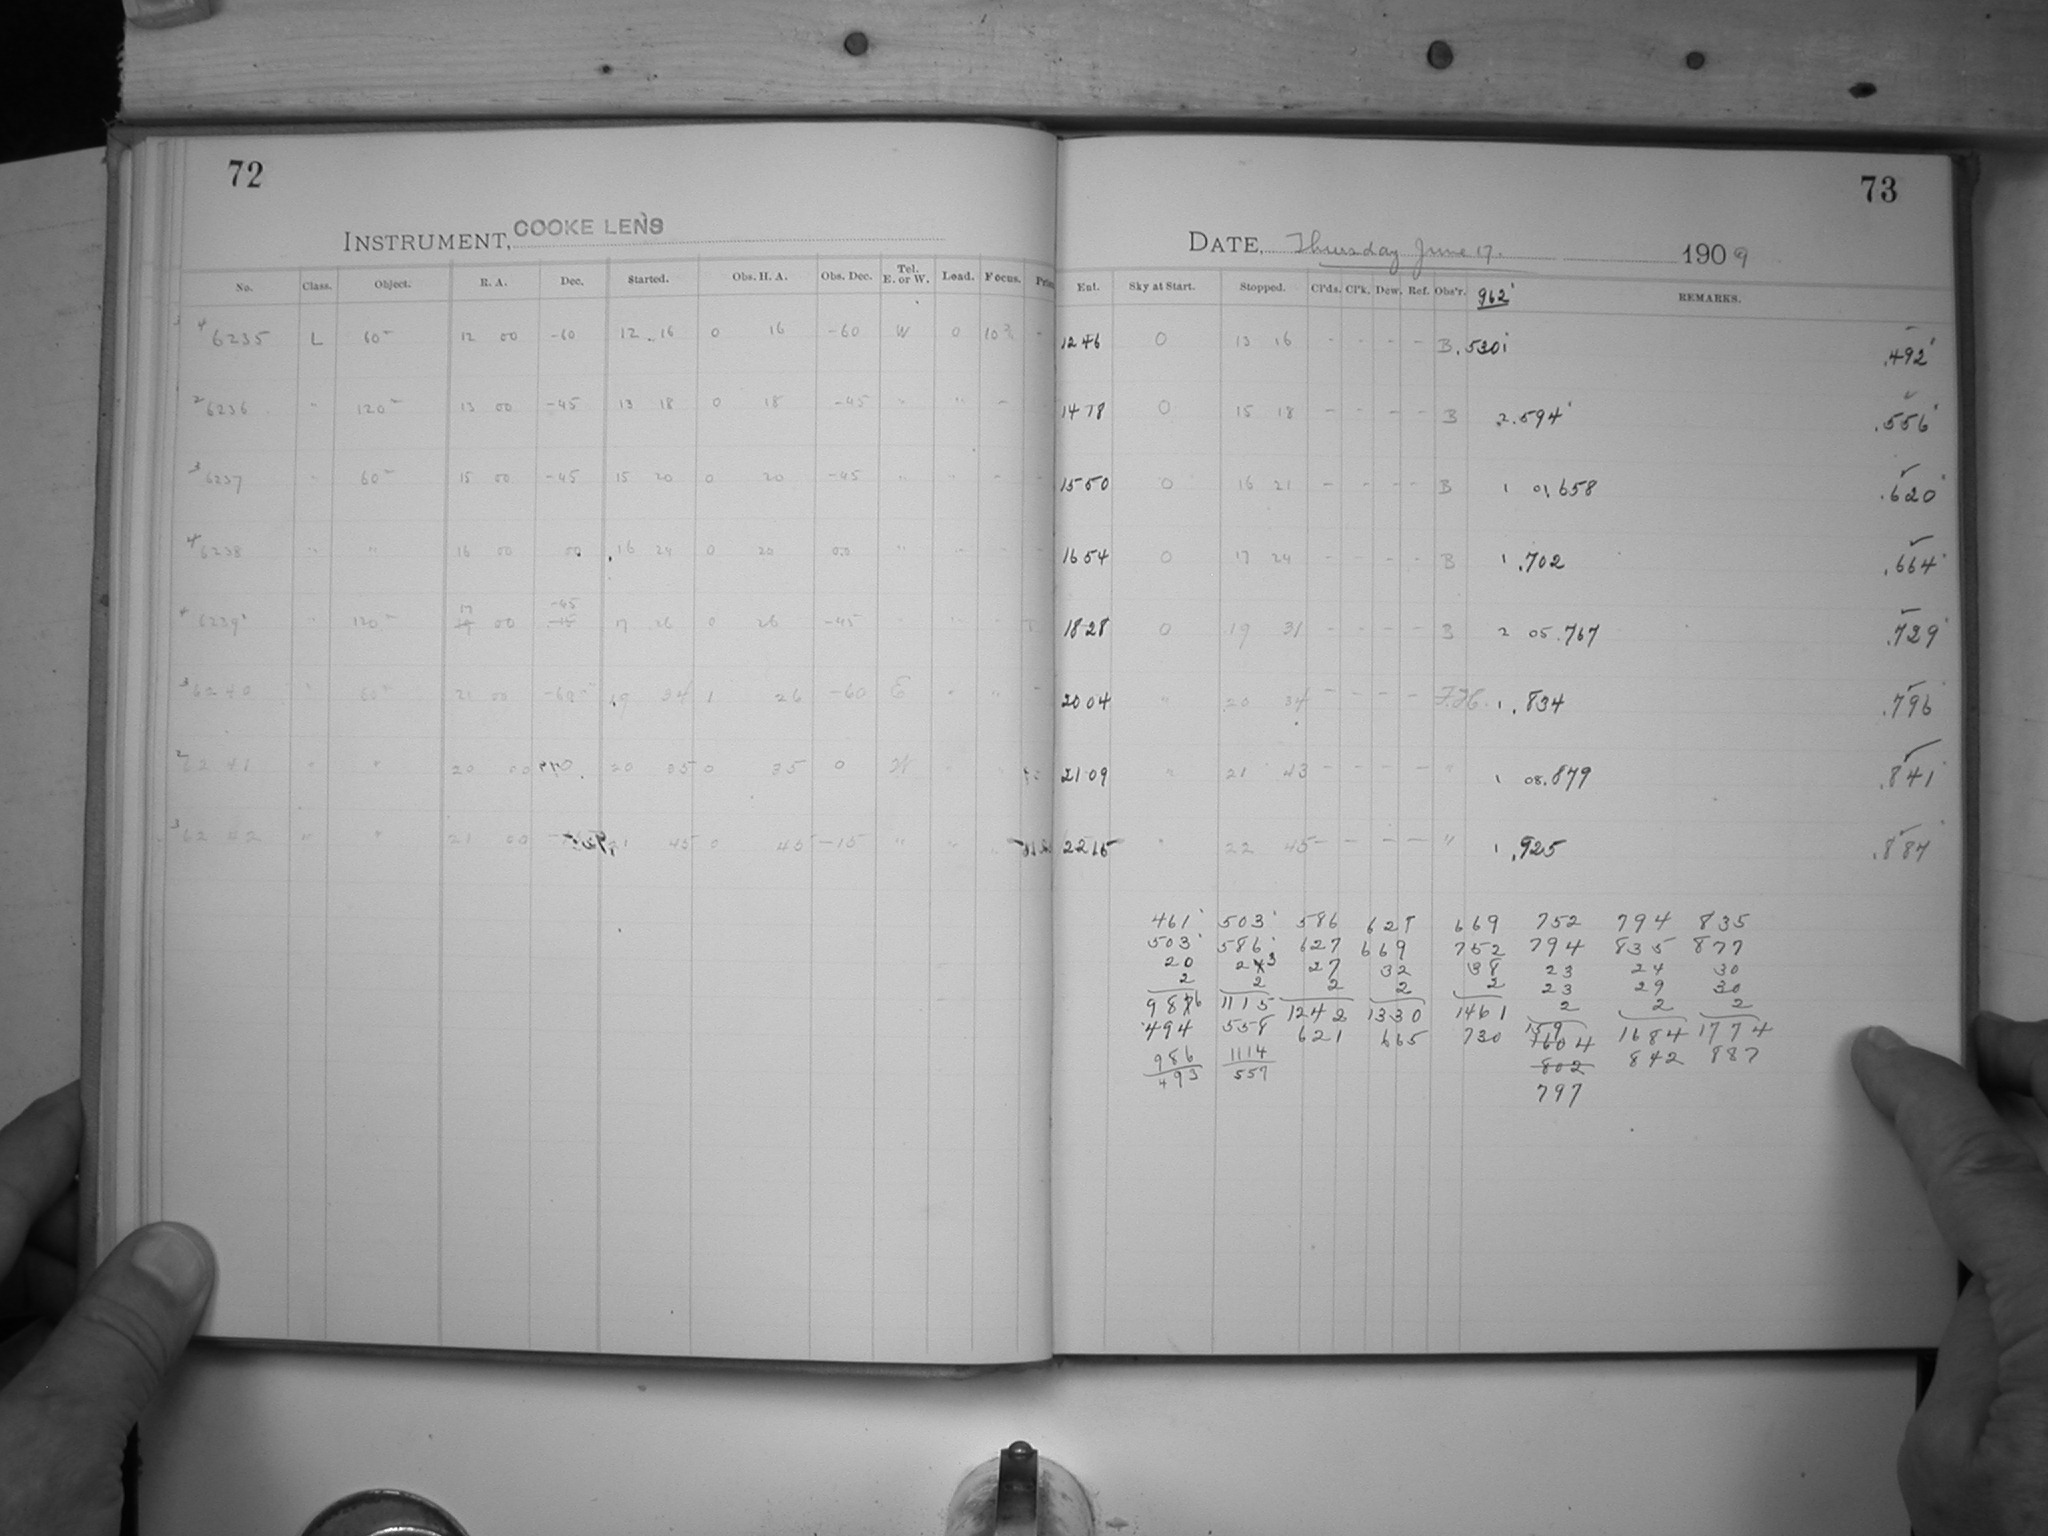 72
INSTRUMENT, COOKE LENS
No. Class. Object. R. A. Dec. Started. Obs. H. A. Obs. Dec. Tel. E. or W. Load. Focus.
4 6235 L 60 12 00 -60 12 16 0 16 -60 W 0 10
2 6236 " 120 13 00 -45 13 18 0 18 -45 " " -
3 6237 " 60 15 00 -45 15 20 0 20 -45 " " -
4 6238 " " 16 00 00 16 24 0 20 00 " " -
4 6239 " 120 17 00 -45 17 26 0 26 -45 " " -
3 6240 " 60 21 00 -60 19 34 1 26 -60 E " "
2 6241 " " 20 00 20 05 0 35 0 W
3 6242 " " 21 00 21 45 0 45 -15 " "
73
DATE, Thursday June 17. 1909
Ent. Sky at Start. Stopped. Cl'ds. Cl'k. Dew. Ref. Obs'r. 962 REMARKS.
1246 0 13 16 - - - - B .530 .492
1418 0 15 18 - - - - B 2 .594 .556
1550 0 16 21 - - - - B 1 01.658 .620
1654 0 17 24 - - - - B 1 .702 .664
1828 0 19 31 - - - - B 2 05.767 .729
2004 " 20 34 - - - - 1 .834 .796
2109 " 21 43 - - - - " 1 08.879 .841
2215 " 22 45 - - - - " 1 .925 .887
461 503 586 627 669 752 794 835
503 586 627 669 752 794 835 877
20 27 32 38 23 24 30
2 2 2 2 2 23 29 30
2 2 2
1115 1242 1330 1461 1684 1774
494 558 621 665 730 1604 842 887
986 1114 802
493 557 797